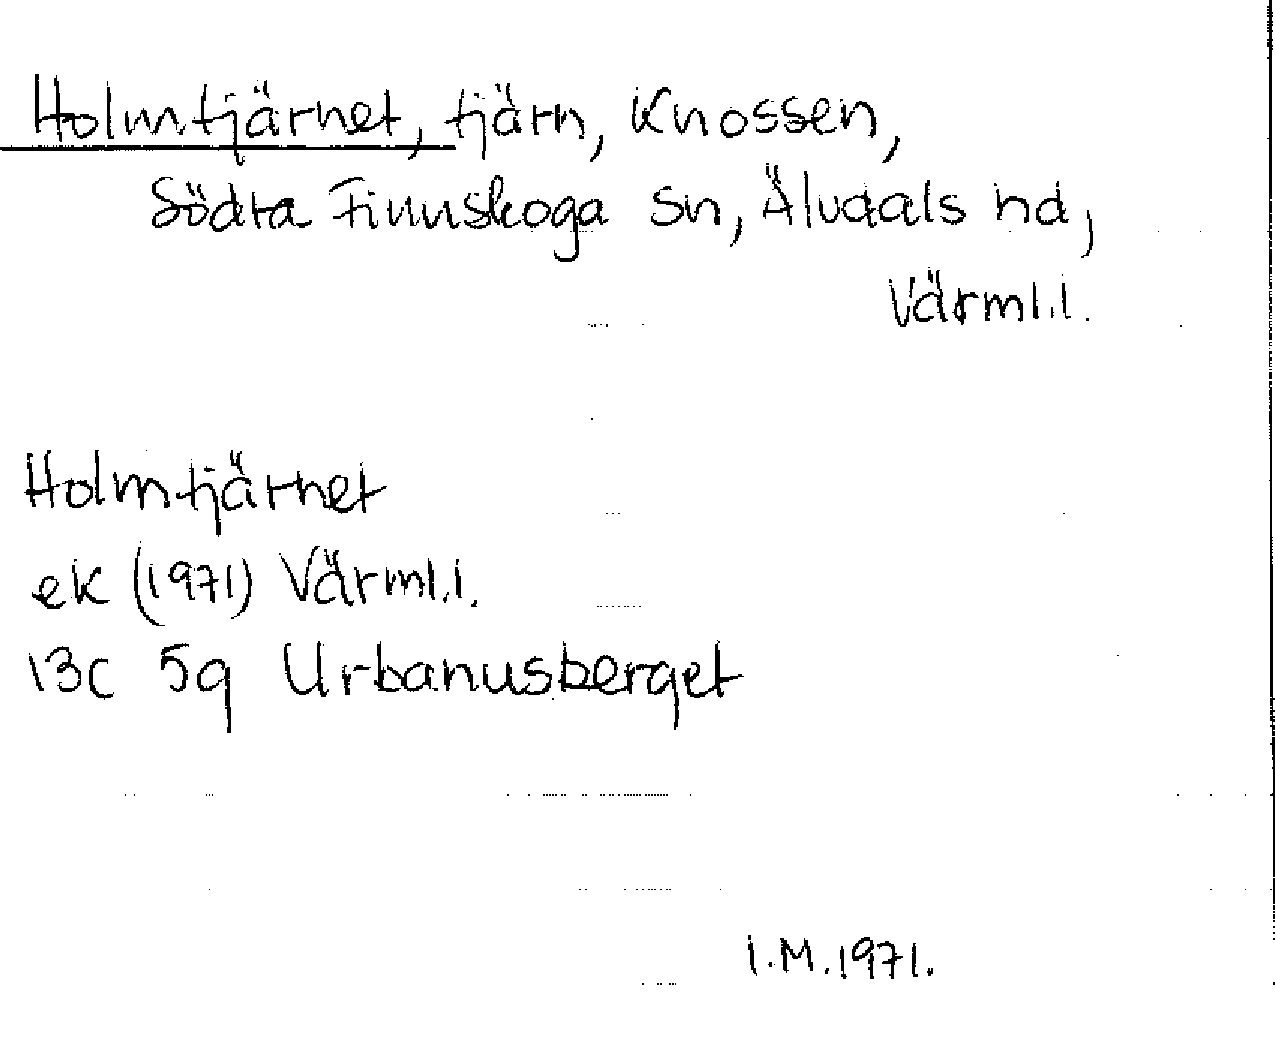 Holmtjärnet, tjärn, Knossen,
Södra Finnskoga sn, Älvdals hd,
Värml.l.
Holmtjärnet
ek (1971) Värml.l.
13c 5g Urbanusberget
I.M.1971.